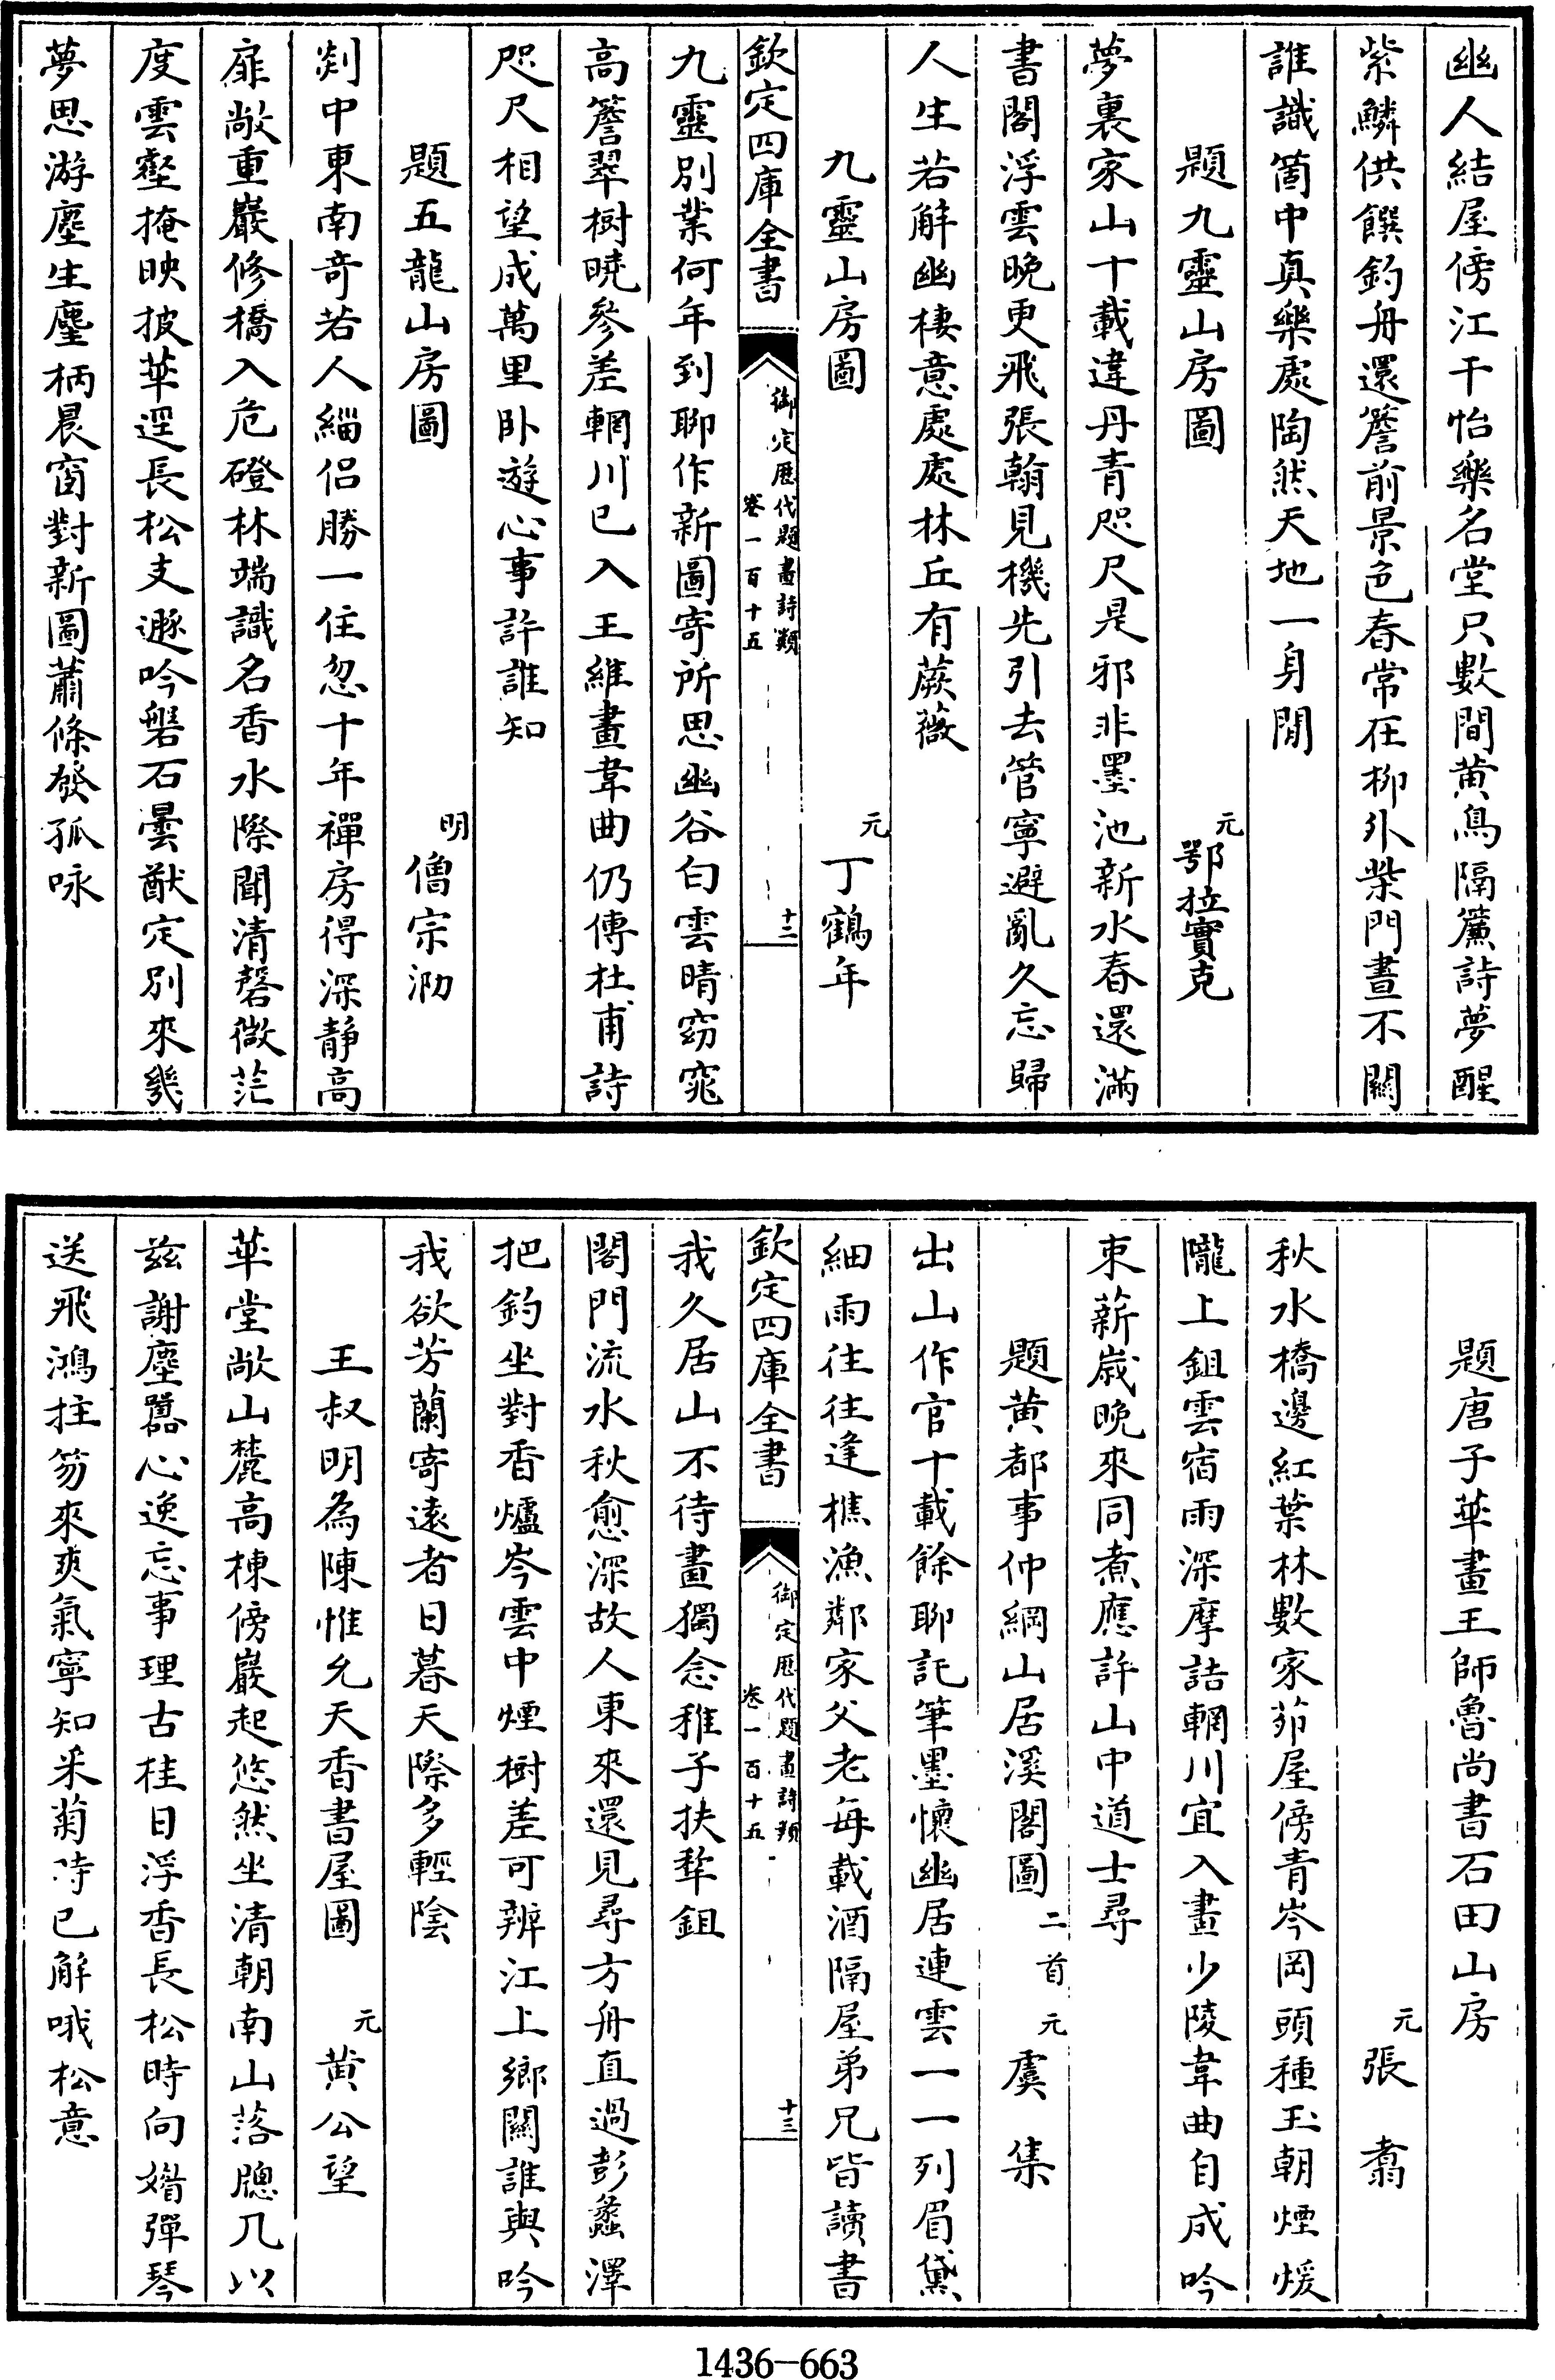 幽人結屋傍江干怡樂名堂只數間黄鳥隔簾詩夢醒
紫鱗供饌釣舟還簷前景色春常在柳外柴門晝不關
誰識箇中真樂處陶然天地一身閒
題九靈山房圖
元鄂拉實克
夢裏家山十載違丹青咫尺是邪非墨池新水春還滿
書閣浮雲晚更飛張翰見機先引去管寧避亂久忘歸
人生若解幽棲意處處林丘有蕨薇
九靈山房圖
元丁鶴年
欽定四庫全書
御定歷代題畫詩類
卷一百十五
十二
九靈別業何年到聊作新圖寄所思幽谷白雲晴窈窕
高簷翠樹曉參差輞川已入王維畫韋曲仍傳杜甫詩
咫尺相望成萬里卧遊心事許誰知
題五龍山房圖
明僧宗泐
剡中東南奇若人緇侣勝一住忽十年禪房得深靜高
扉敞重巖修橋入危磴林端識名香水際聞清磬微茫
度雲壑掩映披華逕長松支遯吟磐石曇猷定別來幾
夢思游塵生麈柄晨窗對新圖蕭條發孤咏
題唐子華畫王師魯尚書石田山房
元張翥
秋水橋邊紅葉林數家茆屋傍青岑岡頭種玉朝煙煖
隴上鉏雲宿雨深摩詰輞川宜入畫少陵韋曲自成吟
束薪歲晚來同煮應許山中道士尋
題黄都事仲綱山居溪閣圖二首
元虞集
出山作官十載餘聊託筆墨懷幽居連雲一一列眉黛
細雨往往逢樵漁鄰家父老每載酒隔屋弟兄皆讀書
欽定四庫全書
御定歷代題畫詩類
卷一百十五
十三
我久居山不待畫獨念稚子扶犂鉏
閣門流水秋愈深故人東來還見尋方舟直過彭蠡澤
把釣坐對香爐岑雲中煙樹差可辨江上鄉關誰與吟
我欲芳蘭寄遠者日暮天際多輕陰
王叔明為陳惟允天香書屋圖
元黄公望
華堂敞山麓高棟傍巖起悠然坐清朝南山落牕几以
兹謝塵囂心逸忘事理古桂日浮香長松時向媚彈琴
送飛鴻拄笏來爽氣寧知采菊時已解哦松意
1436-663